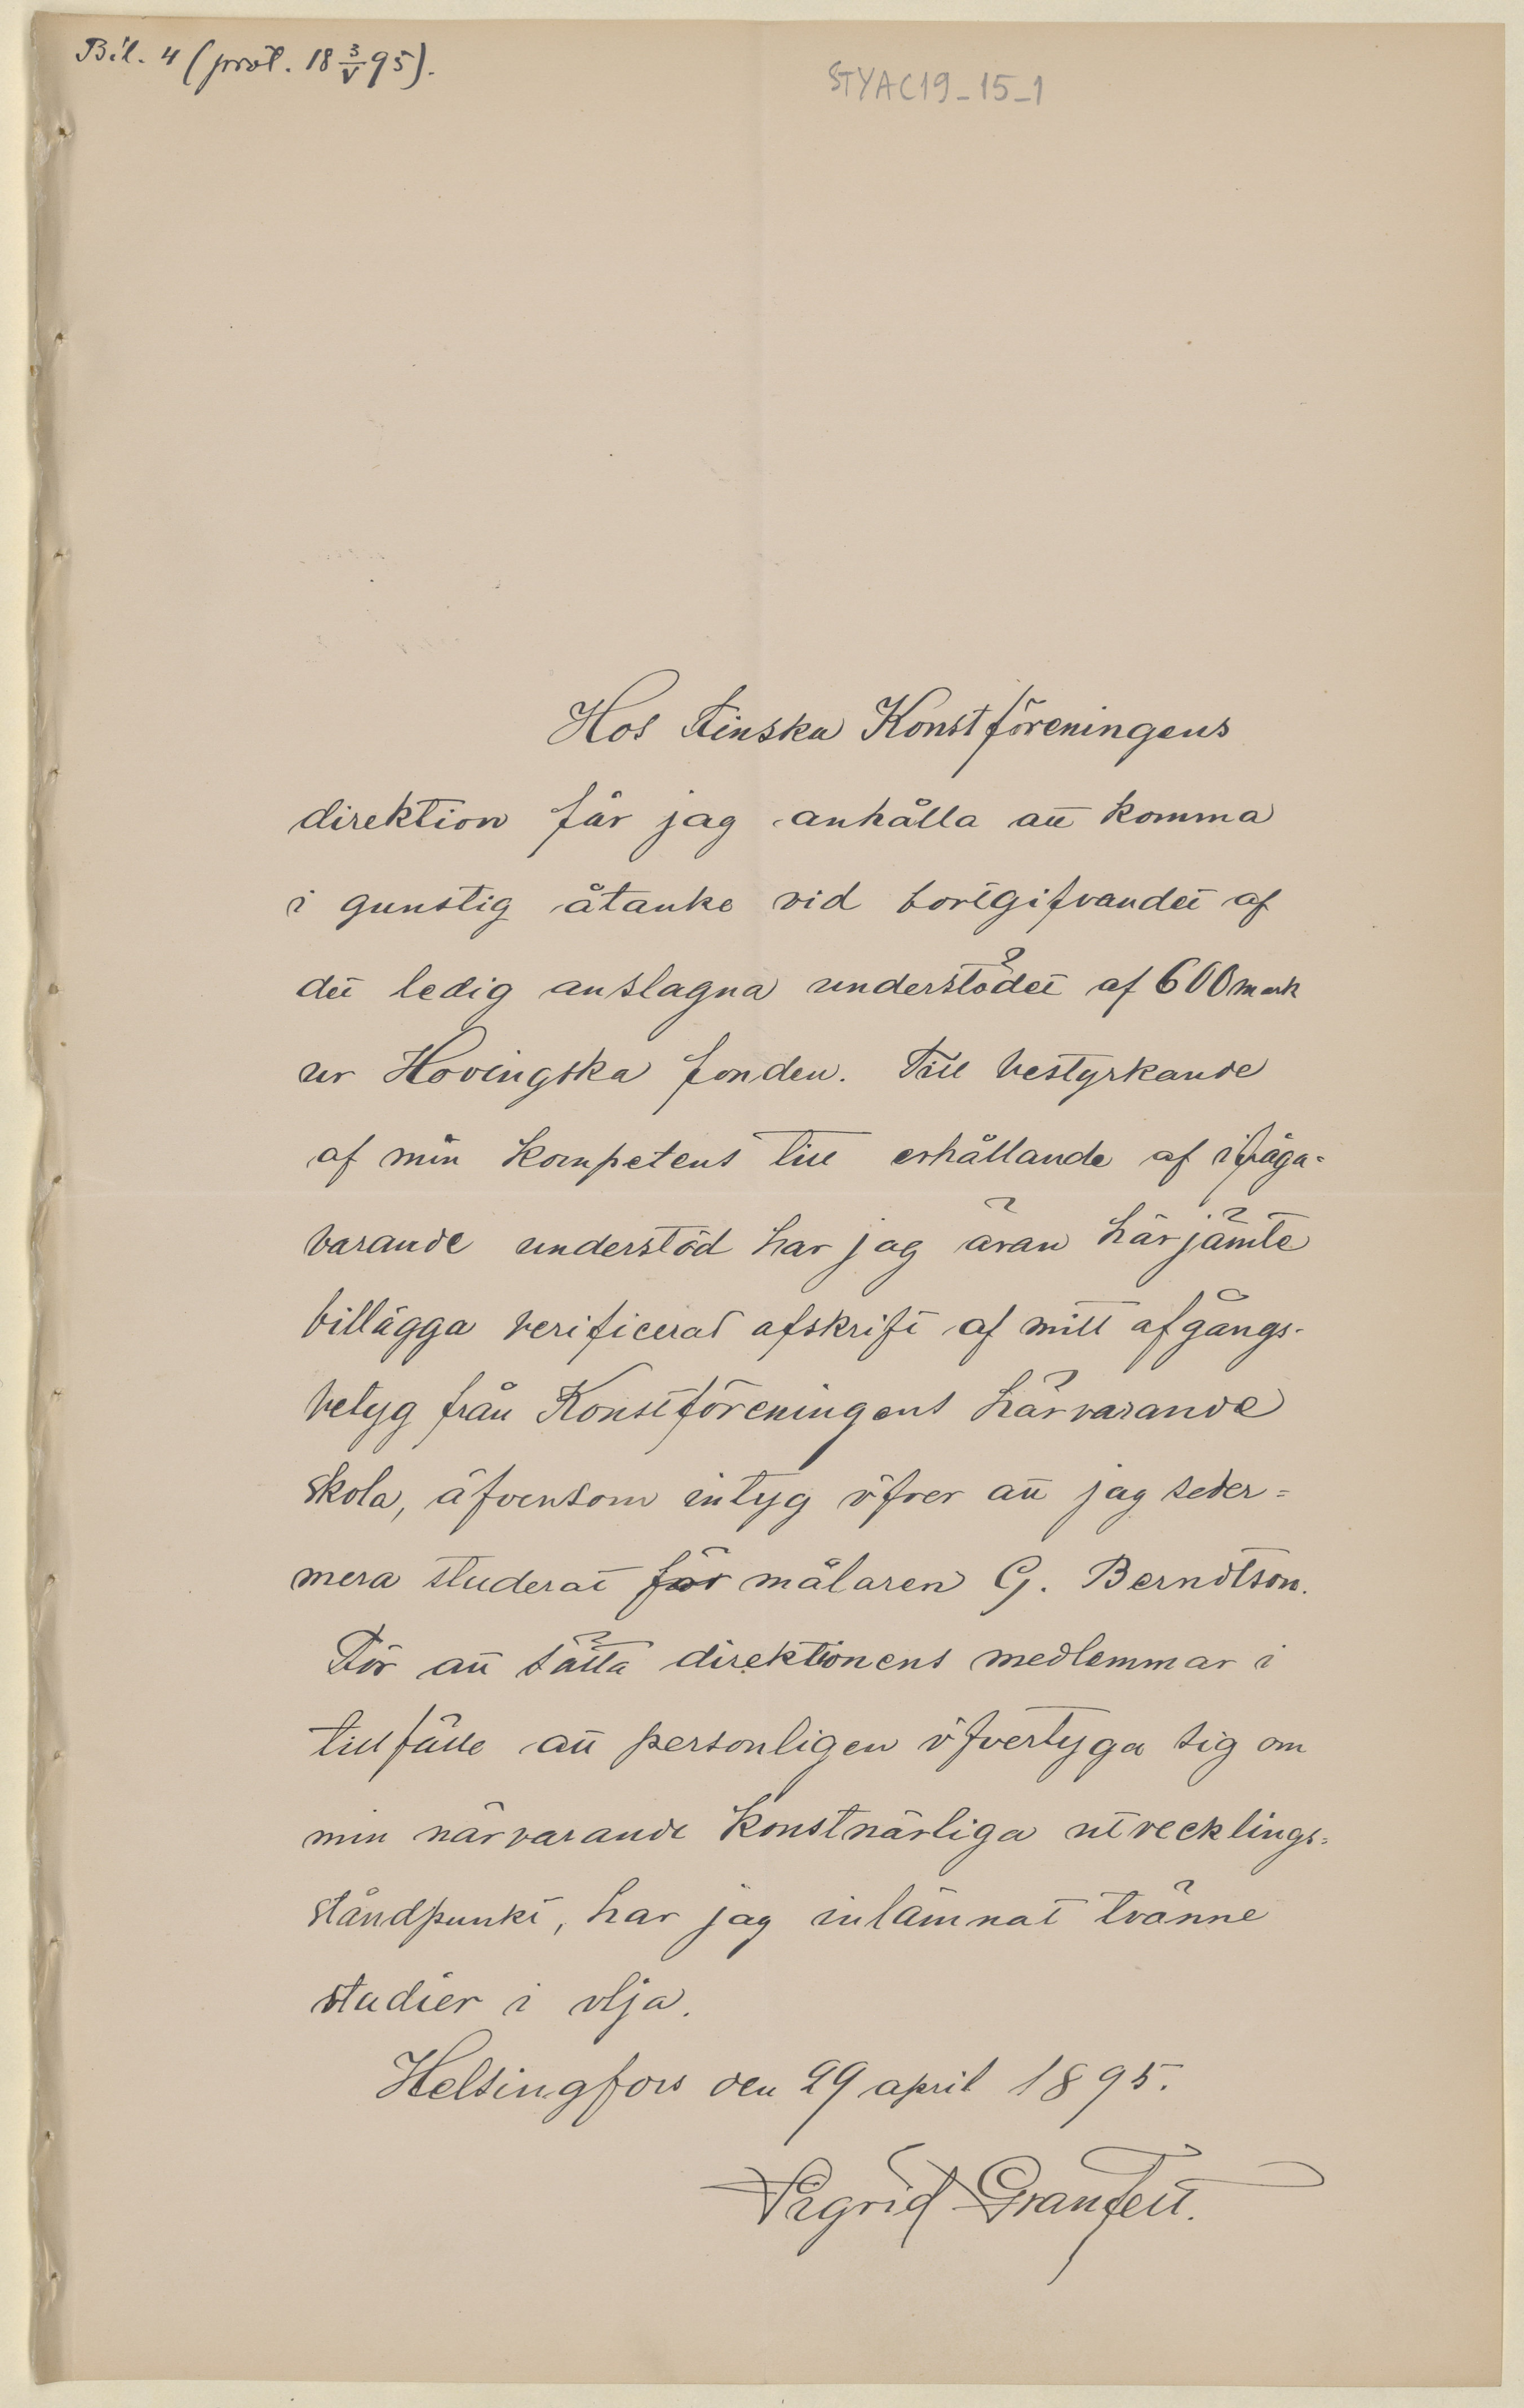 Bil. 4 (prot. 18 3/V 95).
STYAC19_15_1
Hos Finska Konstföreningens
direktion får jag anhålla att komma
i gunstig åtanke vid bortgifvandet af
det ledig anslagna understödet af 600 mark
ur Hovingska fonden. Till bestyrkande
af min kompetens till erhållande af ifråga-
varande understöd har jag äran härjämte
billägga verificerad afskrift af mitt afgångs-
betyg från Konstföreningens härvarande
skola, äfvensom intyg öfver att jag seder=
mera studerat för målaren G. Berndtson.
För att sätta direktionens medlemmar i
tillfälle att personligen öfvertyga sig om
min närvarande konstnärliga utvecklings=
ståndpunkt, har jag inlämnat tvänne
studier i olja.
Helsingfors den 29 april 1895.
Sigrid Granfelt.